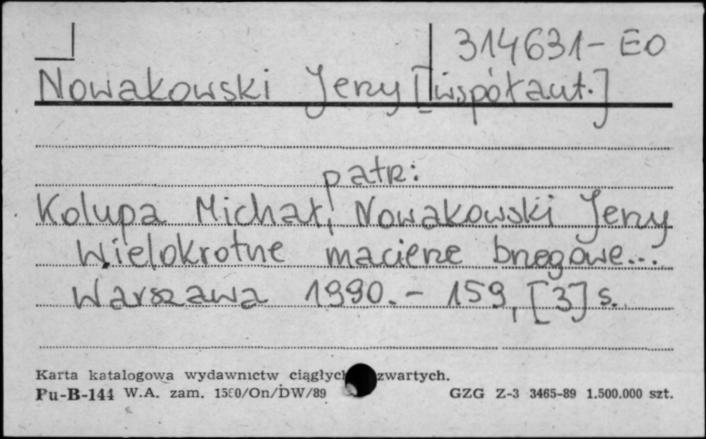 314631-EO
Nowakowski Jerzy [współaut.]
patrz:
Kolupa Michał, Nowakowski Jerzy
Wielokrotne macierze brzegowe...
Warszawa 1990.- 159, [3] s.
Karta katalogowa wydawnictw ciągłych zwartych.
Pu-B-144 W.A. zam. 1580/On/DW/89 GZG Z-3 3465-89 1.500.000 szt.